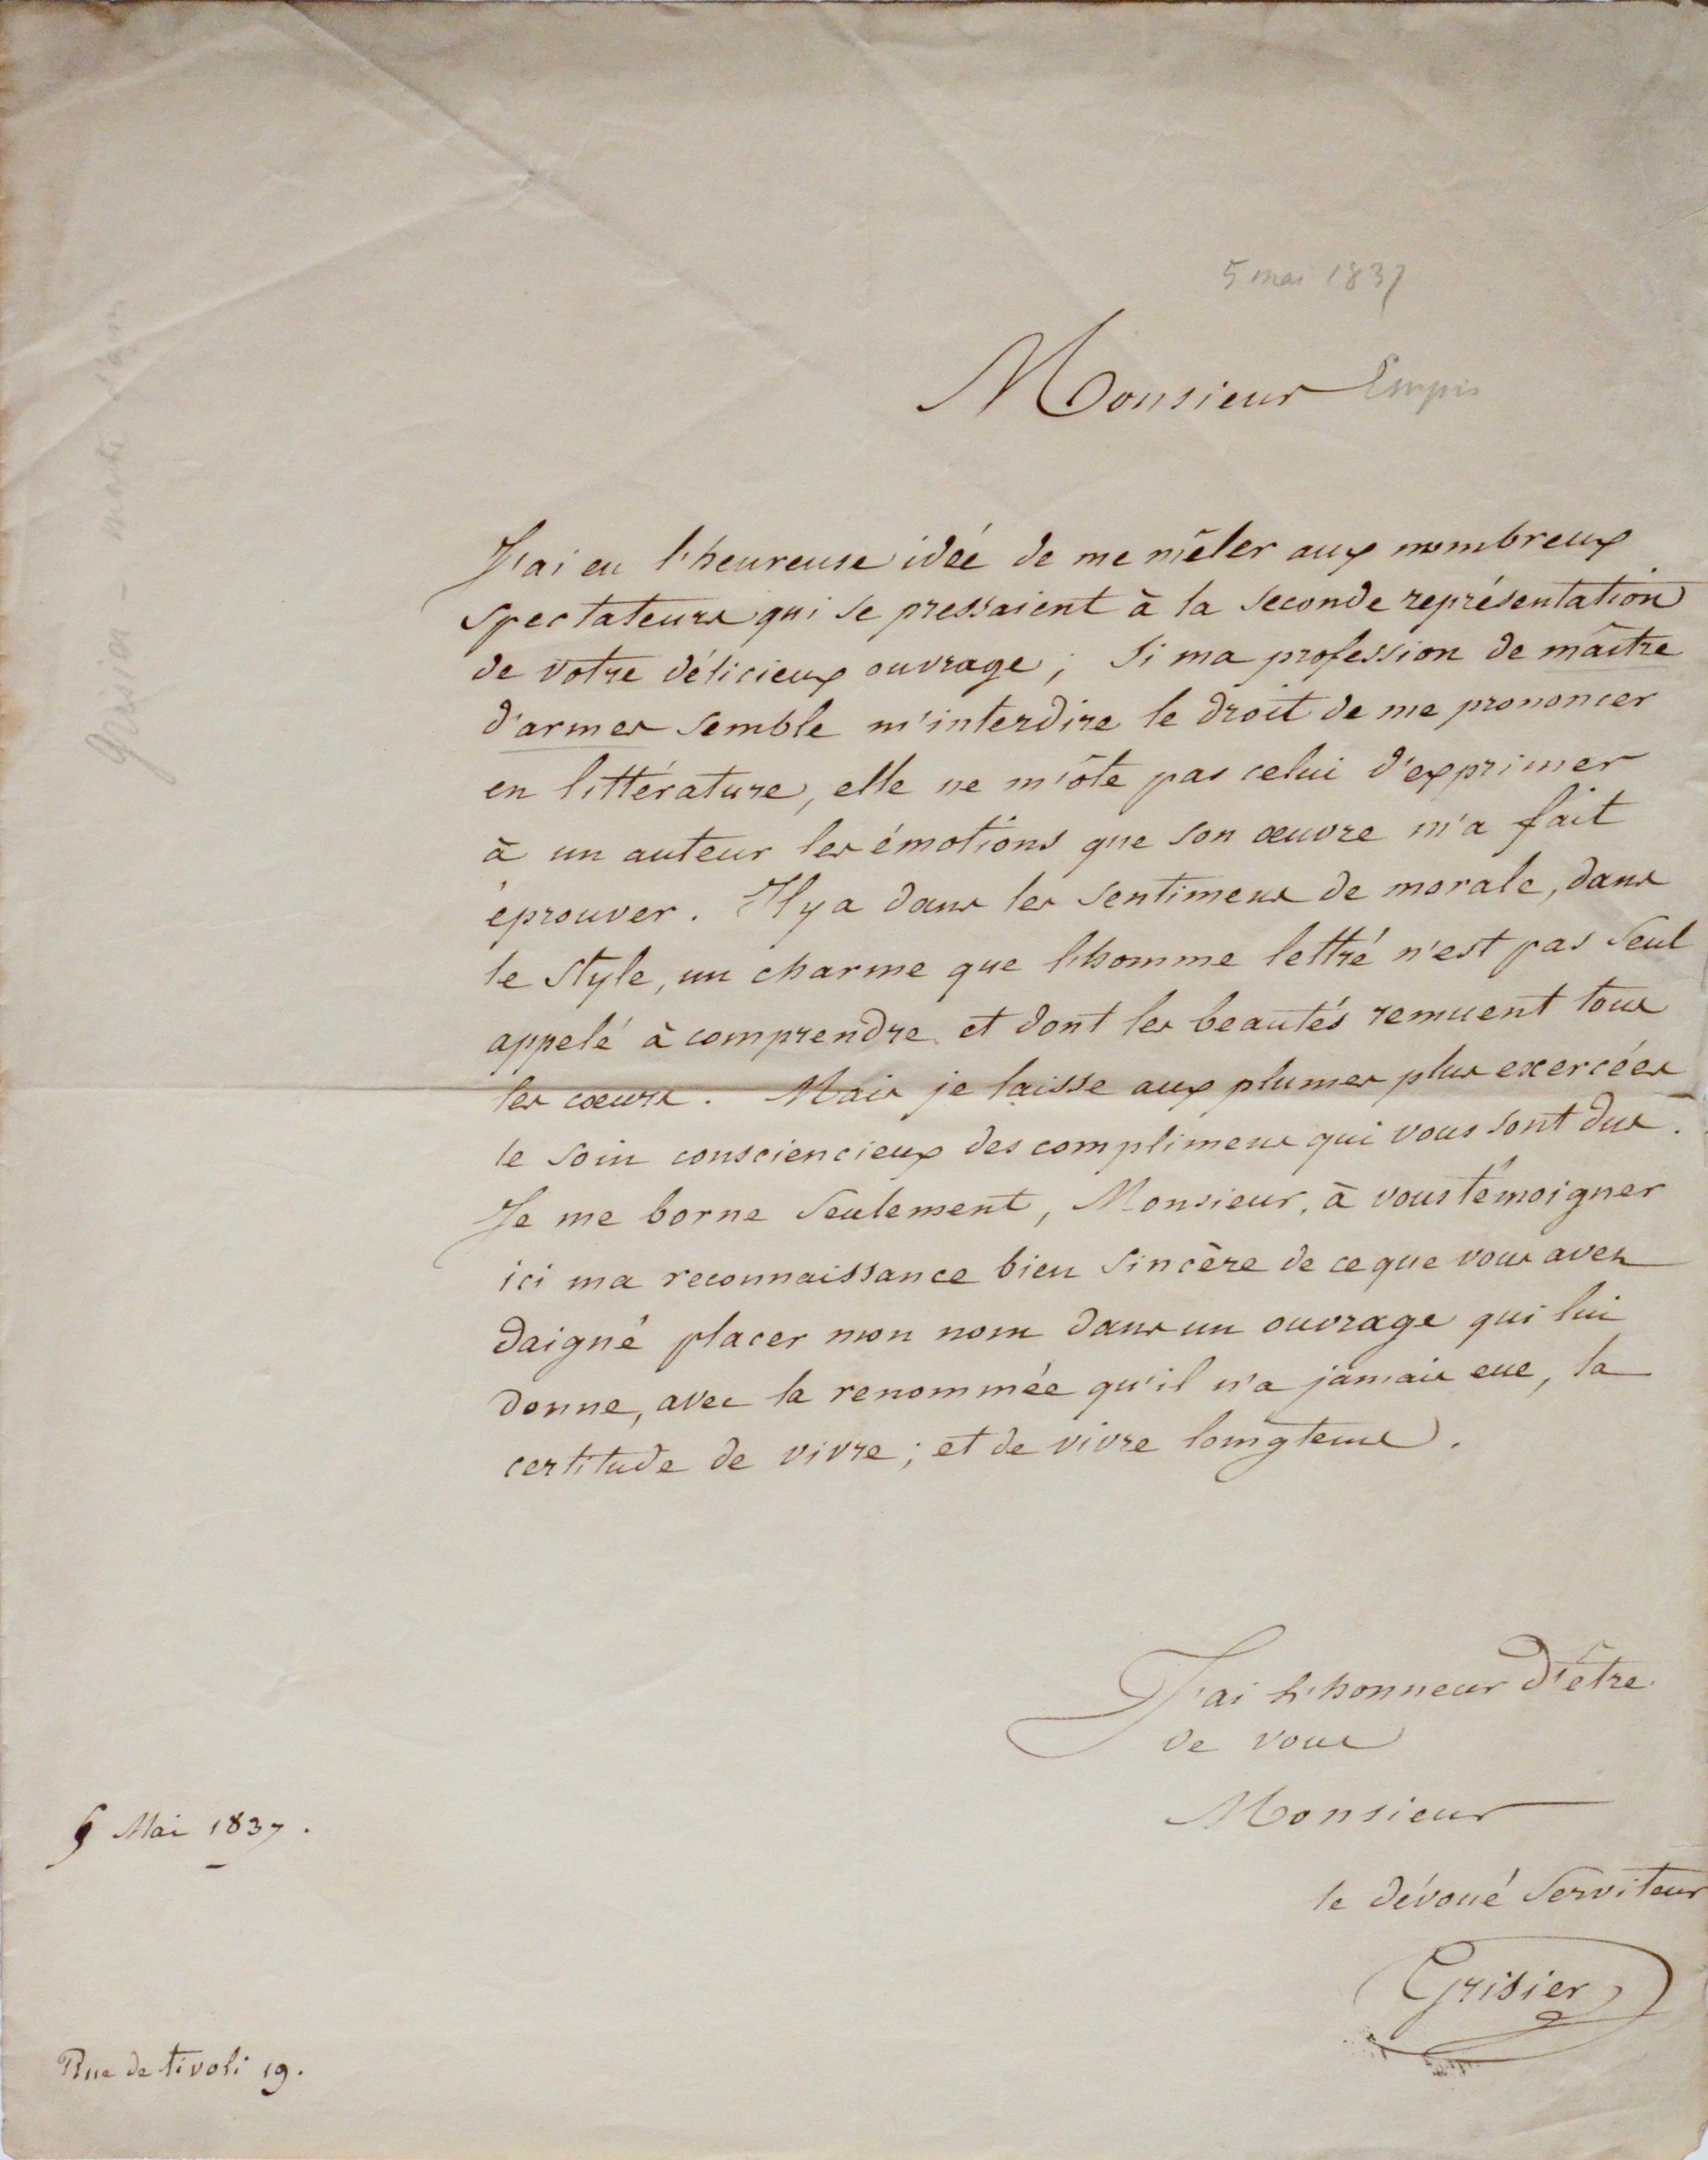 5 mai 1837
Monsieur Empis
J'ai eu l'heureuse idée de me mêler aux nombreux
spectateurs qui se pressaient à la seconde représentation
de votre délicieux ouvrage ; si ma profession de maître
d'armes semble m'interdire le droit de me prononcer
en littérature, elle ne m'ôte pas celui d'exprimer
à un auteur les émotions que son œuvre m'a fait
éprouver. Il y a dans les sentimens de morale, dans
le style, un charme que l'homme lettré n'est pas seul
appelé à comprendre et dont les beautés remuent tous
les cœurs. Mais je laisse aux plumes plus exercées
le soin consciencieux des complimens qui vous sont dus.
Je me borne seulement, Monsieur, à vous témoigner
ici ma reconnaissance bien sincère de ce que vous avez
daigné placer mon nom dans un ouvrage qui lui
donne, avec la renommée qu'il n'a jamais eue, la
certitude de vivre ; et de vivre longtems.
J'ai l'honneur d'être
de vous
Monsieur
le dévoué Serviteur
Grisier
5 Mai 1837.
Rue de tivoli 19.